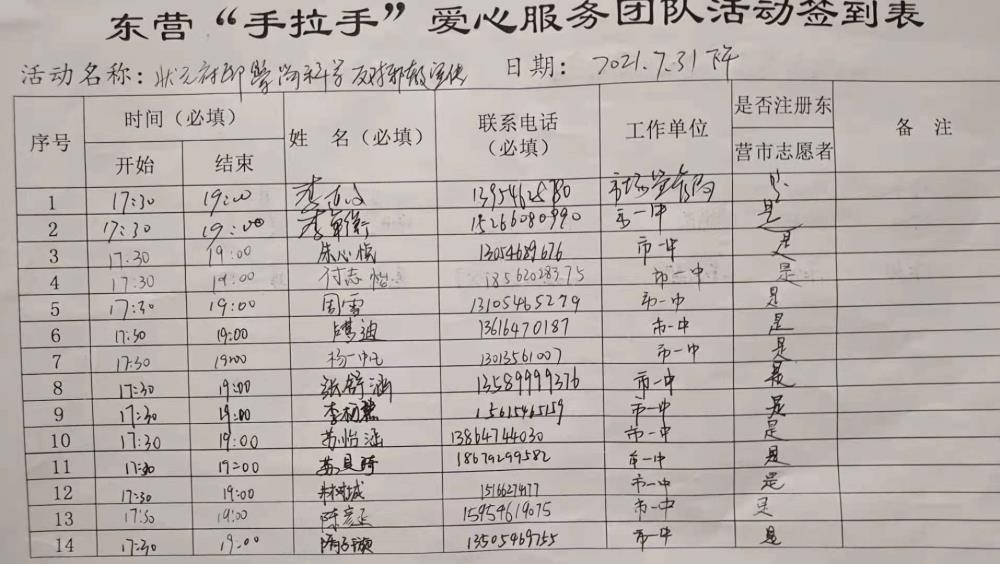 东营“手拉手”爱心服务团队活动签到表
活动名称： 日期：2021.7.31下午
序号 时间（必填） 姓 名（必填） 联系电话（必填） 工作单位 是否注册东营市志愿者 备 注
开始 结束
1 17:30 19:00 李 13954628780 市场监管局 是
2 17:30 19:00 李 15266080990 市一中 是
3 17:30 19:00 朱心悦 13054689676 市一中 是
4 17:30 19:00 付志怡 18562028375 市一中 是
5 17:30 19:00 周雪 13105465279 市一中 是
6 17:30 19:00 迪 13616470187 市一中 是
7 17:30 19:00 杨一凡 13013561007 市一中 是
8 17:30 19:00 张舒涵 13589999376 市一中 是
9 17:30 19:00 李 15615465159 市一中 是
10 17:30 19:00 苏怡涵 13864744030 市一中 是
11 17:30 19:00 苏 18679299582 市一中 是
12 17:30 19:00 市一中 是
13 17:30 19:00 陈彦 15954619075 市一中 是
14 17:30 19:00 13505469755 市一中 是